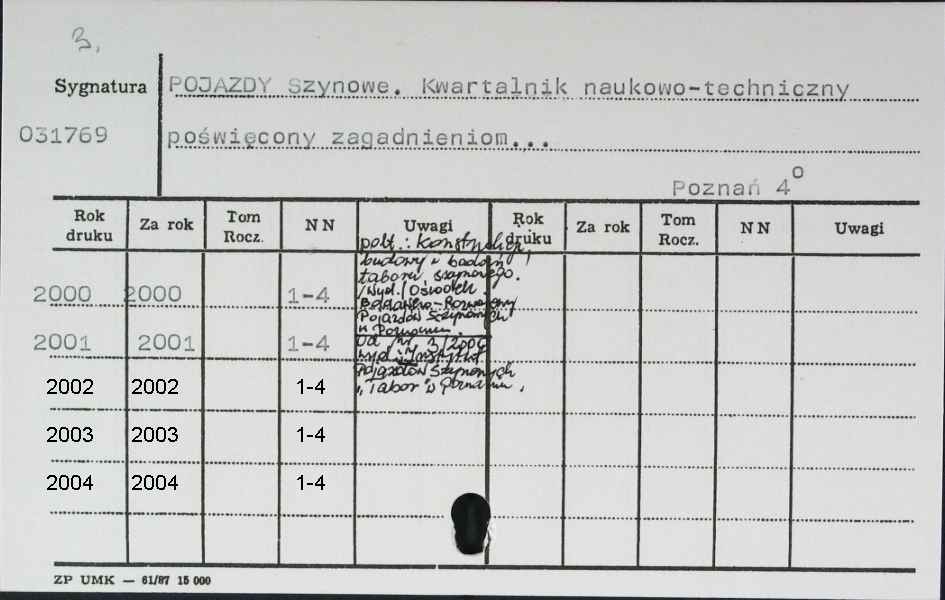 3.
Sygnatura POJAZDY Szynowe. Kwartalnik naukowo-techniczny
031769 poświęcony zagadnieniom...
Poznań 4º
Rok druku Za rok Tom Rocz. NN Uwagi Rok druku Za rok Tom Rocz. NN Uwagi
budowy i badań
taboru szynowego.
/Wyd./ Ośrodek
Badawczo-Rozwojowy
Pojazdów Szynowych
w Poznaniu.
Od nr 3/2000
wyd.: Instytut
Pojazdów Szynowych
"Tabor" w Poznaniu.
2000 2000 1-4
2001 2001 1-4
2002 2002 1-4
2003 2003 1-4
2004 2004 1-4
ZP UMK — 61/87 15 000